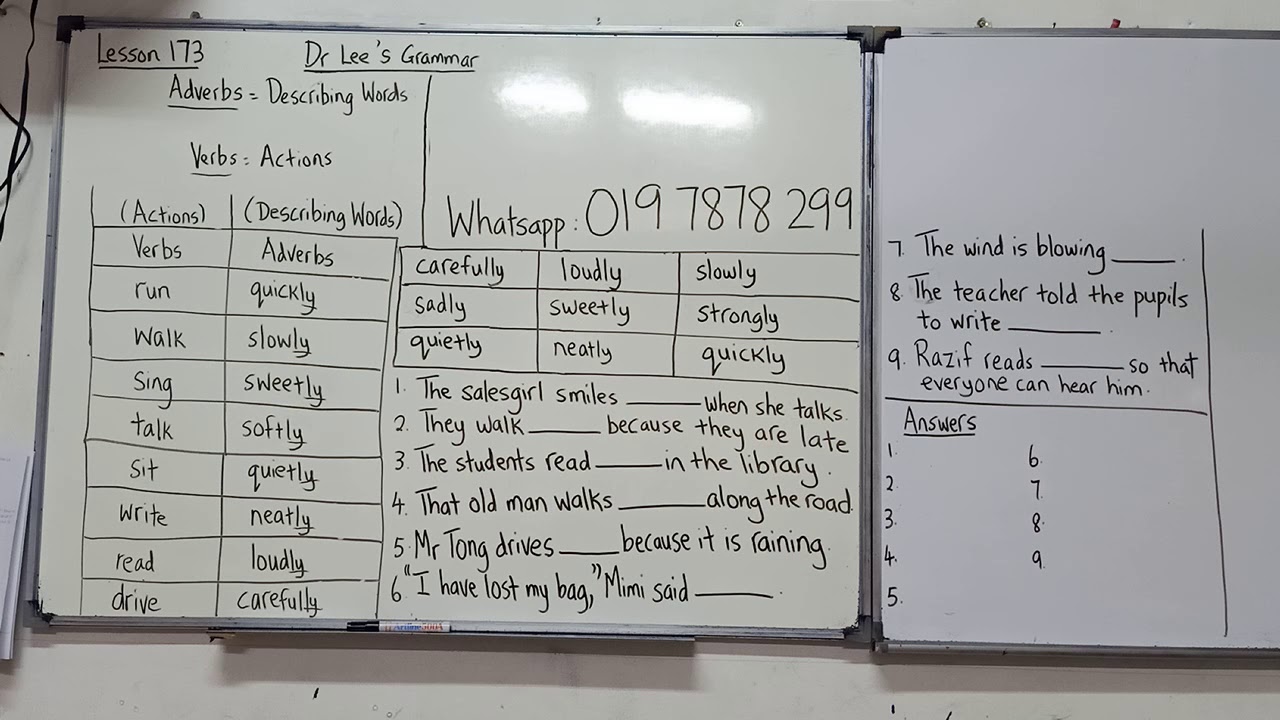 Lesson 173
Dr Lee's Grammar
Adverbs = Describing Words
Verbs = Actions
(Actions) (Describing Words)
Verbs Adverbs
run quickly
walk slowly
Sing sweetly
talk softly
Sit quietly
write neatly
read loudly
drive carefully
Whatsapp: 019 7878 299
carefully loudly slowly
sadly sweetly strongly
quietly neatly quickly
1. The salesgirl smiles ______ when she talks.
2. They walk ______ because they are late
3. The students read ______ in the library.
4. That old man walks ______ along the road.
5. Mr Tong drives ______ because it is raining.
6. "I have lost my bag," Mimi said ______.
7. The wind is blowing ______.
8. The teacher told the pupils
to write ______.
9. Razif reads ______ so that
everyone can hear him.
Answers
1. 6.
2. 7.
3. 8.
4. 9.
5.